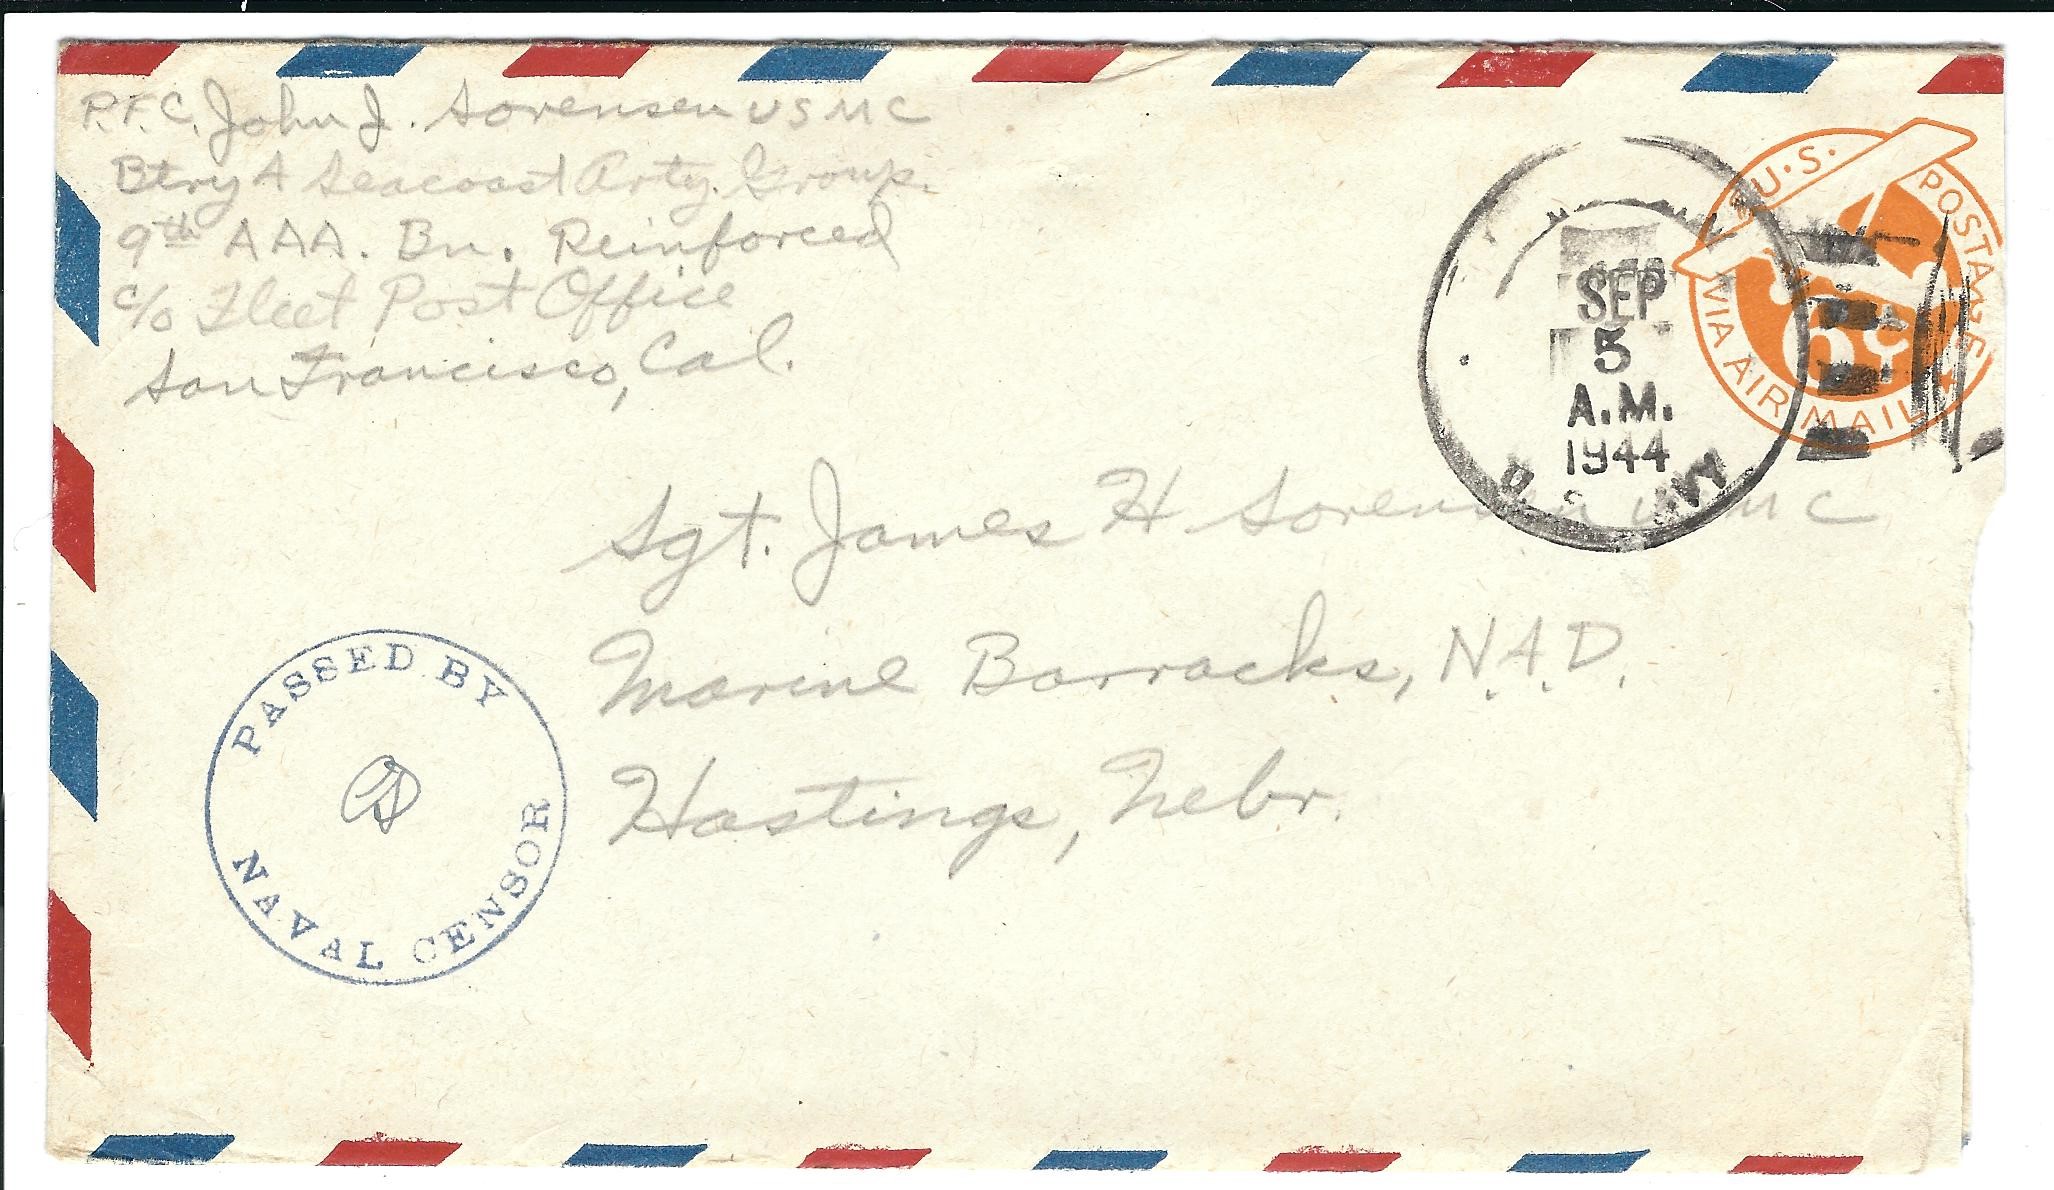 P.F.C. John J. Sorensen USMC
Btry A Seacoast Arty. Group.
9th AAA. Bn. Reinforced
c/o Fleet Post Office
San Francisco, Cal.
U.S. POSTAGE
6¢
VIA AIR MAIL
SEP
5
A.M.
1944
U.S. NAVY
Sgt. James H Sorensen USMC
Marine Barracks, N.A.D.
Hastings, Nebr.
PASSED BY
NAVAL CENSOR